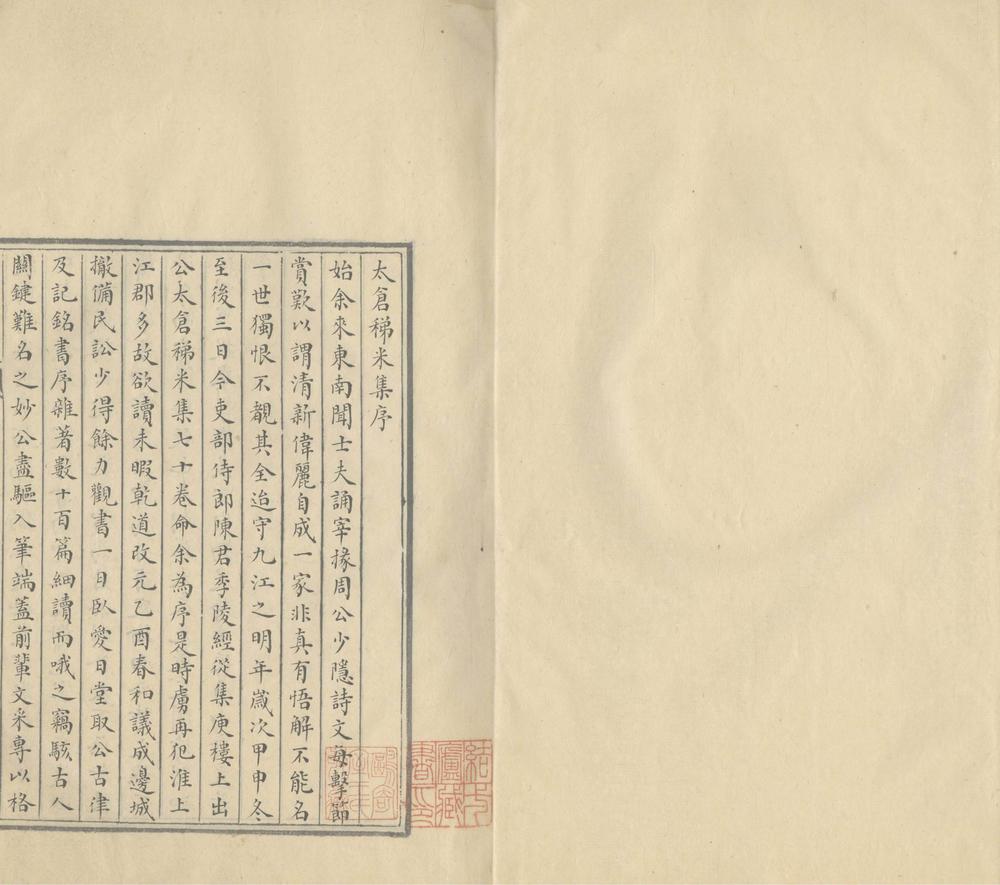 太倉稊米集序
始余來東南聞士夫誦宰掾周公少隱詩文每擊節
賞歎以謂清新偉麗自成一家非真有悟解不能名
一世獨恨不覩其全迨守九江之明年歲次甲申冬
至後三日今吏部侍郎陳君季陵經從集庾樓上出
公太倉稊米集七十卷命余為序是時虜再犯淮上
江郡多故欲讀未暇乾道改元乙酉春和議成邊城
撤備民訟少得餘力觀書一日臥愛日堂取公古律
及記銘書序雜著數十百篇細讀而哦之竊駭古人
關鍵難名之妙公盡驅入筆端蓋前輩文采專以格